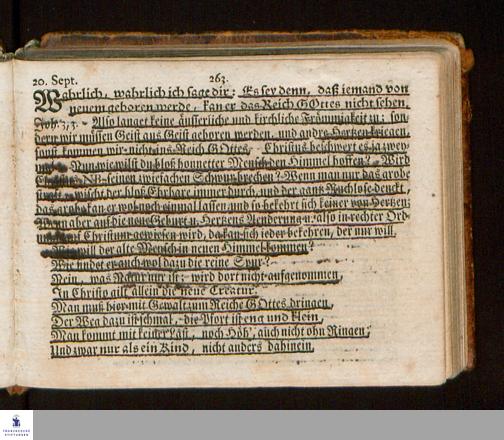 20. Sept. 263.
Wahrlich, wahrlich ich sage dir: Es sey denn, daß iemand von
neuem geboren werde, kan er das Reich GOttes nicht sehen.
Joh. 3, 3. Also langet keine äusserliche und kirchliche Frömmigkeit zu; son-
dern wir müssen Geist aus Geist geboren werden, und andre Hertzen kriegen,
sonst kommen wir nicht ins Reich GOttes. Christus beschwert es ja zwey-
Nun wie wilst du bloß honnetter Mensch den Himmel hoffen? Wird
seinen zwiefachen Schwur brechen? Wenn man nur das grobe
wischt der bloß Ehrbare immer durch, und der gantz Ruchlose denckt,
das grobe kan er wol noch einmal lassen, und so bekehrt sich keiner von Hertzen;
Wenn aber auf die neue Geburt u. Hertzens Aenderung u. also in rechter Ord-
Christum gewiesen wird, da kan sich ieder bekehren, der nur will.
will der alte Mensch in neuen Himmel kommen?
Wie findet er auch wol dazu die reine Spur?
Nein, was Natur nur ist, wird dort nicht aufgenommen,
In Christo gilt allein die neue Creatur.
Man muß hier mit Gewalt zum Reiche GOttes dringen,
Der Weg dazu ist schmal, die Pfort ist eng und klein,
Man kommt mit keiner Last, noch Höh', auch nicht ohn Ringen,
Und zwar nur als ein Kind, nicht anders da hinein.
FRANCKESCHE
STIFTUNGEN